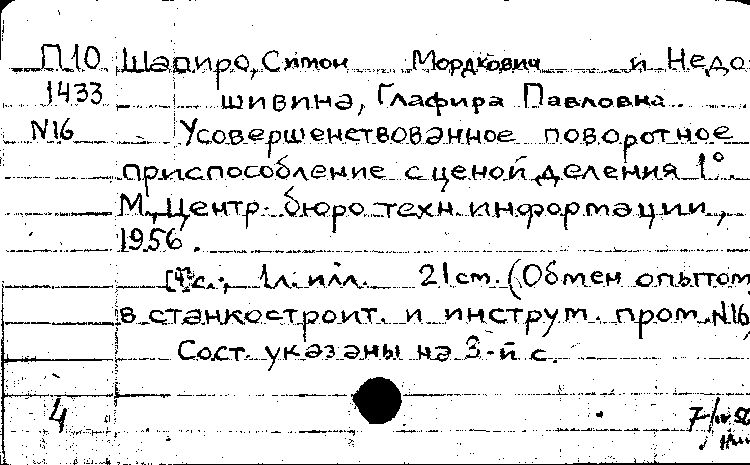 П10 Шапиро, Симон Мордкович и Недо
1433 шивина, Глафира Павловна.
N16 Усовершенствованное поворотное
приспособление с ценой деления 1°.
М., Центр. бюро техн. информации,
1956.
[4]с.; 1л. илл. 21 см. (Обмен опытом
в станкостроит. и инструм. пром. N16)
Сост. указаны на 3-й с.
4